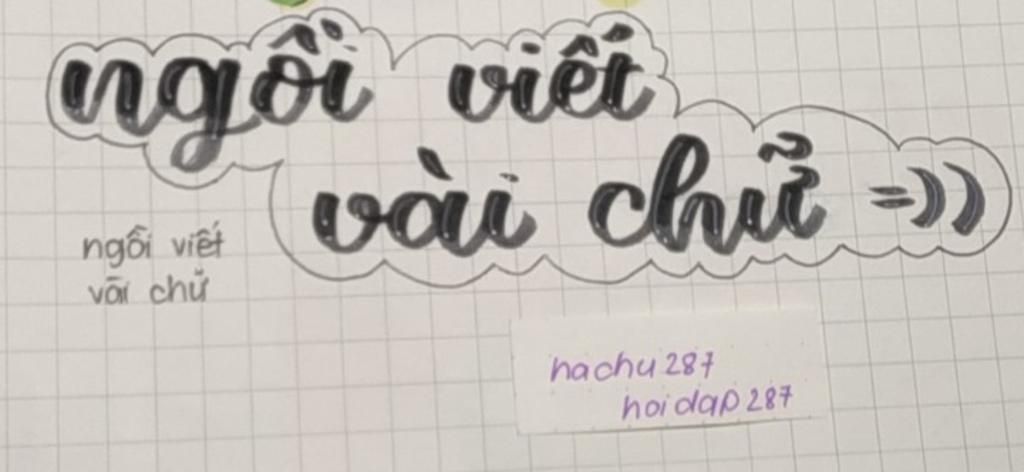 ngồi viết
vài chữ =))
ngồi viết
vài chữ
hachu287
hoidap287